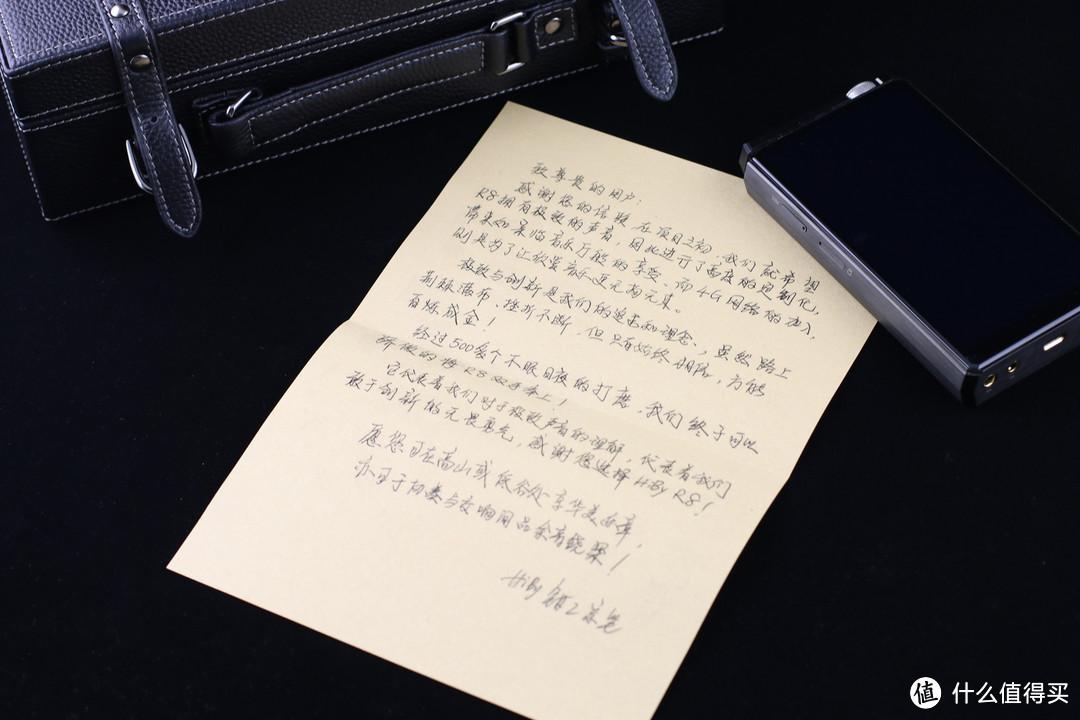 致尊贵的用户：
感谢您的信赖，在项目之初，我们就希望
R8拥有极致的声音，因此进行了高度的定制化，
带来如亲临音乐厅般的享受。而4G网络的加入，
则是为了让欣赏音乐更无拘无束。
极致与创新是我们的追求和理念，虽然路上
荆棘满布、挫折不断，但只有始终相随，方能
百炼成金！
经过500多个不眠日夜的打磨，我们终于可以
骄傲的将R8双手奉上！
它代表着我们对于极致声音的理解，代表着我们
敢于创新的无畏勇气，感谢您选择HiBy R8！
愿您可在高山或低谷处享华美曲章，
亦可于协奏与交响间品余音绕梁！
HiBy
值 什么值得买